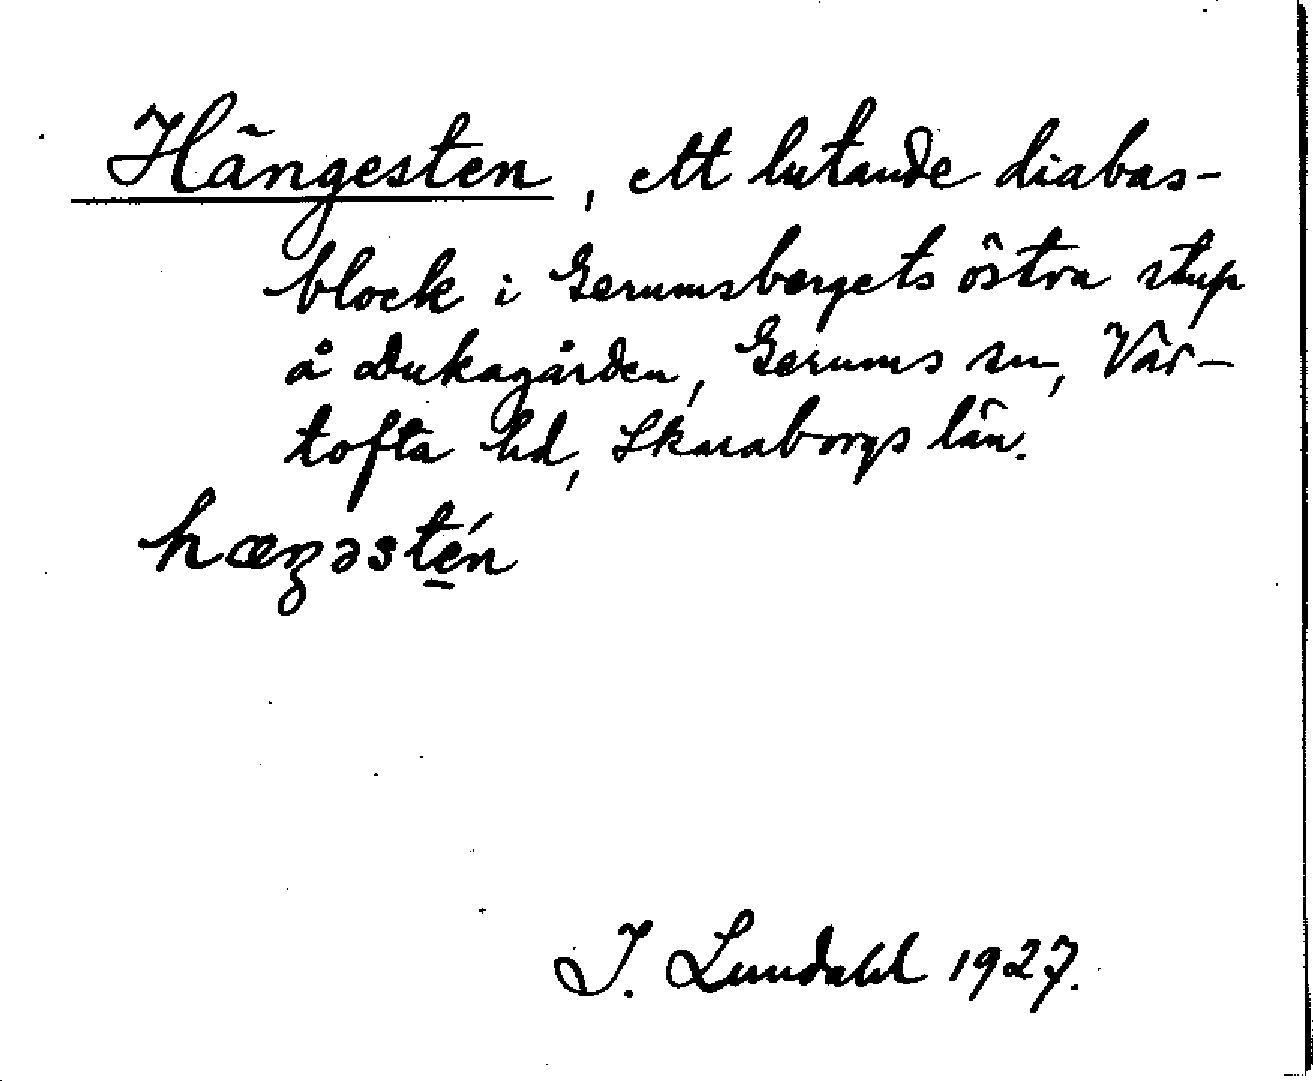 Hängesten, ett lutande diabas-
block i Gerumsbergets östra stup
å Dukagården, Gerums sn, Var-
tofta hd, Skaraborgs län.
hæŋəstén
I. Lundahl 1927.